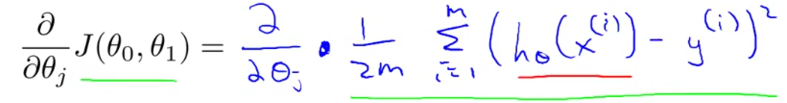 ∂/∂θⱼ J(θ₀, θ₁) = ∂/∂θⱼ · 1/2m Σᵢ₌₁ᵐ (hθ(x⁽ⁱ⁾) - y⁽ⁱ⁾)²